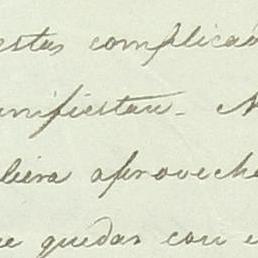 estas complicad
nifiestan. A
liera aproveche
ue quedar con e